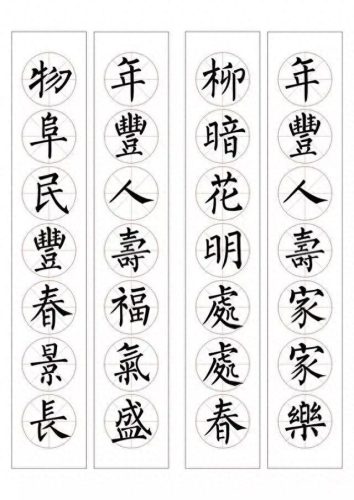 年豐人壽家家樂
柳暗花明處處春
年豐人壽福氣盛
物阜民豐春景長